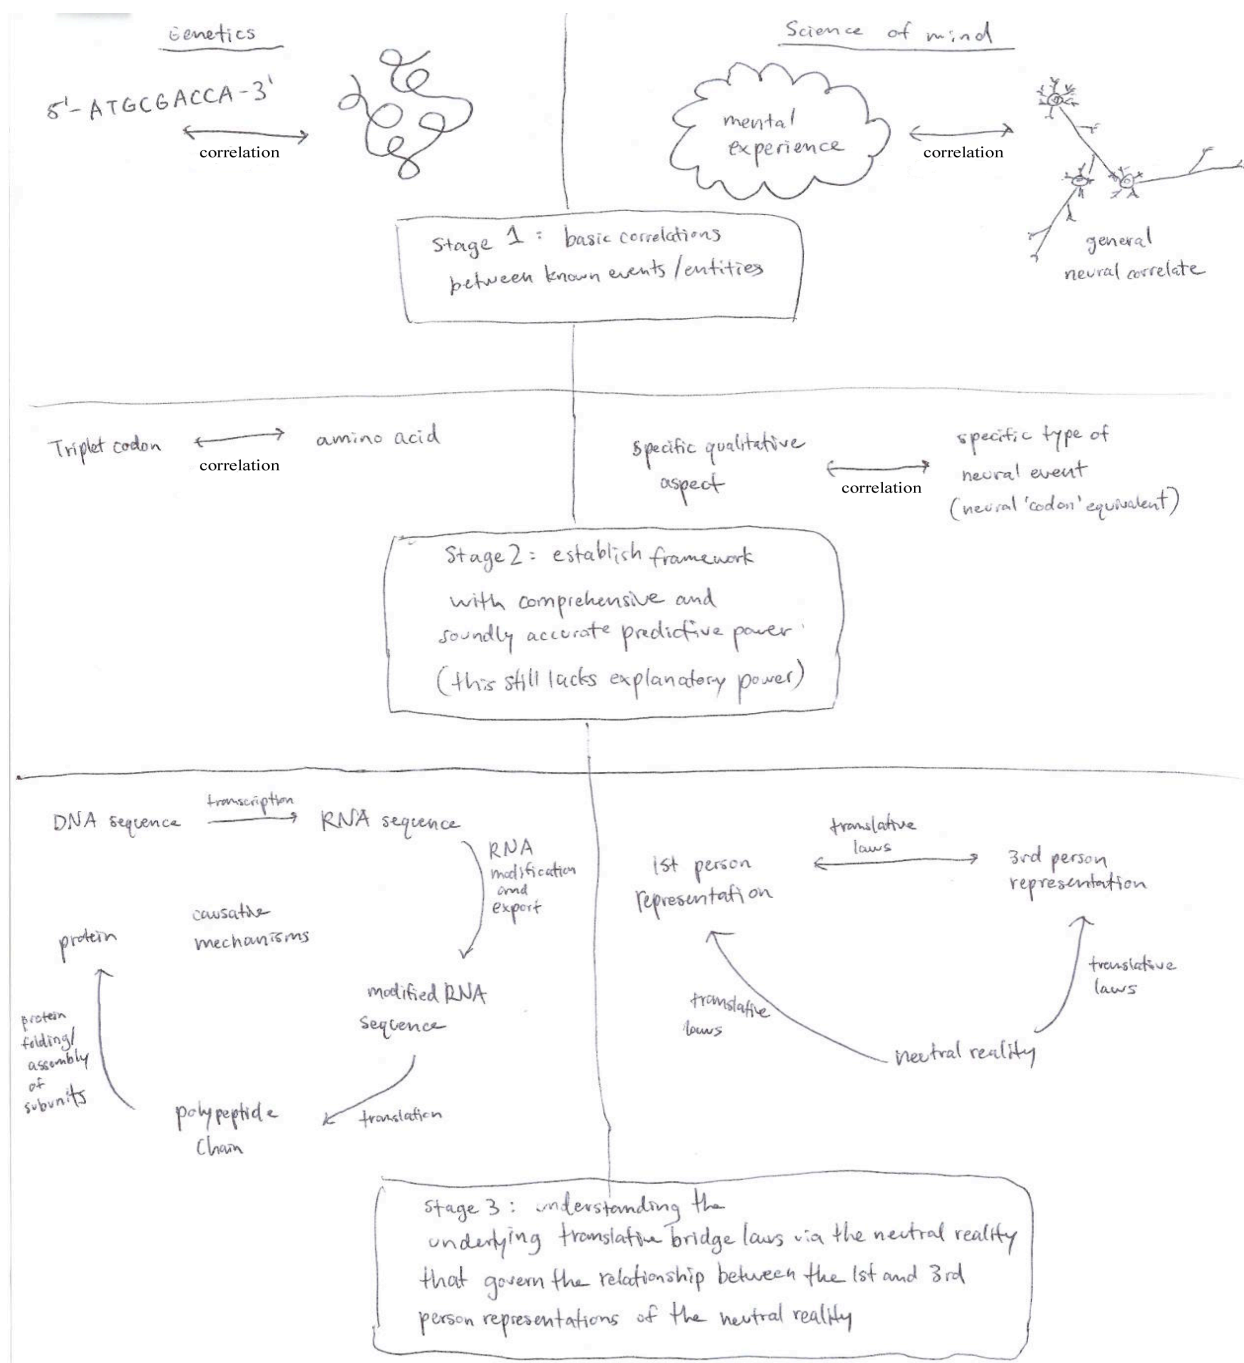 Genetics
Science of mind
5'-ATGCGACCA-3'
correlation
mental
experience
correlation
general
neural correlate
Stage 1: basic correlations
between known events/entities
Triplet codon
correlation
amino acid
specific qualitative
aspect
correlation
specific type of
neural event
(neural 'codon' equivalent)
Stage 2: establish framework
with comprehensive and
soundly accurate predictive power
(this still lacks explanatory power)
DNA sequence
transcription
RNA sequence
RNA
modification
and
export
causative
mechanisms
protein
modified RNA
sequence
protein
folding/
assembly
of
subunits
polypeptide
chain
translation
1st person
representation
translative
laws
3rd person
representation
translative
laws
translative
laws
neutral reality
Stage 3: understanding the
underlying translative bridge laws via the neutral reality
that govern the relationship between the 1st and 3rd
person representations of the neutral reality